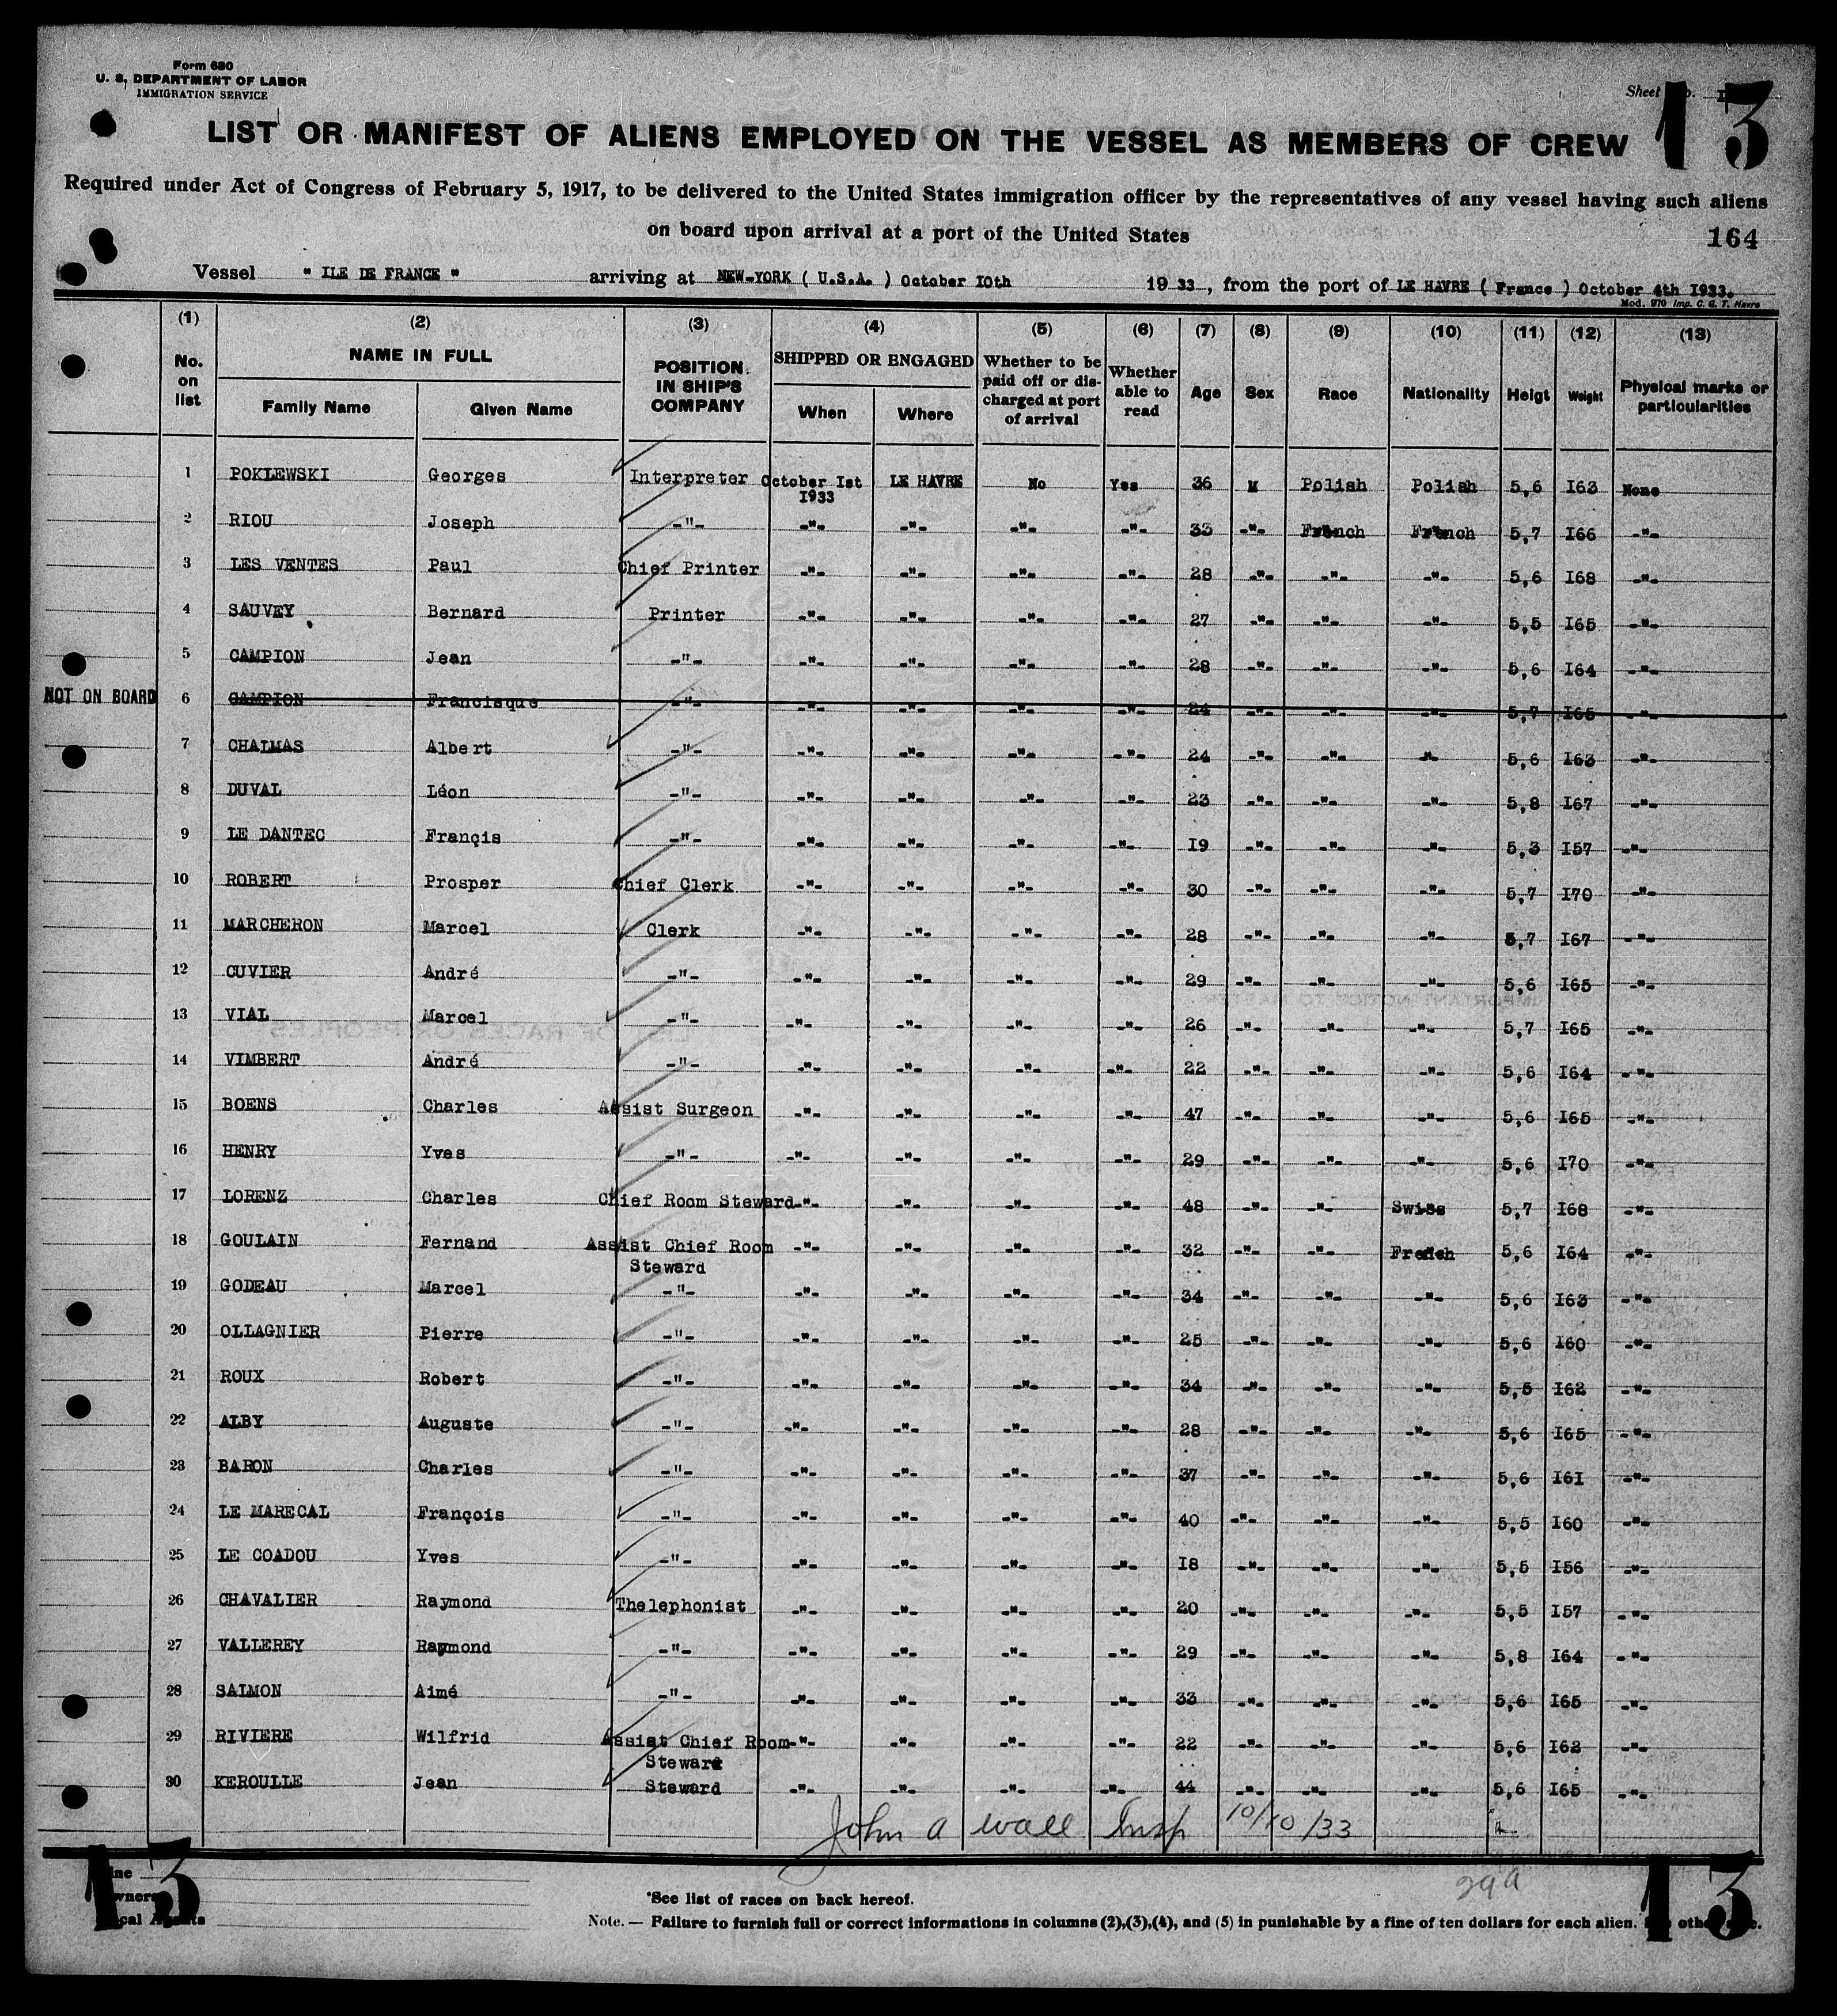 Form 680
U. S. DEPARTMENT OF LABOR
IMMIGRATION SERVICE
Sheet
13
LIST OR MANIFEST OF ALIENS EMPLOYED ON THE VESSEL AS MEMBERS OF CREW
Required under Act of Congress of February 5, 1917, to be delivered to the United States immigration officer by the representatives of any vessel having such aliens
on board upon arrival at a port of the United States
164
Vessel " ILE DE FRANCE " arriving at NEW-YORK ( U.S.A. ) October I0th 19 33 , from the port of LE HAVRE ( France ) October 4th I933.
Mod. 970 Imp. C. G. T. Havre
(1) (2) (3) (4) (5) (6) (7) (8) (9) (10) (11) (12) (13)
No. on list NAME IN FULL Family Name Given Name POSITION IN SHIP'S COMPANY SHIPPED OR ENGAGED When Where Whether to be paid off or discharged at port of arrival Whether able to read Age Sex Race Nationality Heigt Weight Physical marks or particularities
1 POKLEWSKI Georges Interpreter October Ist I933 LE HAVRE No Yes 36 M Polish Polish 5,6 I63 None
2 RIOU Joseph -"- -"- -"- -"- -"- 33 -"- French French 5,7 I66 -"-
3 LES VENTES Paul Chief Printer -"- -"- -"- -"- 28 -"- -"- -"- 5,6 I68 -"-
4 SAUVEY Bernard Printer -"- -"- -"- -"- 27 -"- -"- -"- 5,5 I65 -"-
5 CAMPION Jean -"- -"- -"- -"- -"- 28 -"- -"- -"- 5,6 I64 -"-
NOT ON BOARD 6 CAMPION Francisque -"- -"- -"- -"- -"- 24 -"- -"- -"- 5,7 I65 -"-
7 CHALMAS Albert -"- -"- -"- -"- -"- 24 -"- -"- -"- 5,6 I63 -"-
8 DUVAL Léon -"- -"- -"- -"- -"- 23 -"- -"- -"- 5,8 I67 -"-
9 LE DANTEC Françis -"- -"- -"- -"- -"- I9 -"- -"- -"- 5,3 I57 -"-
10 ROBERT Prosper Chief Clerk -"- -"- -"- -"- 30 -"- -"- -"- 5,7 I70 -"-
11 MARCHERON Marcel Clerk -"- -"- -"- -"- 28 -"- -"- -"- 5,7 I67 -"-
12 CUVIER André -"- -"- -"- -"- -"- 29 -"- -"- -"- 5,6 I65 -"-
13 VIAL Marcel -"- -"- -"- -"- -"- 26 -"- -"- -"- 5,7 I65 -"-
14 VIMBERT André -"- -"- -"- -"- -"- 22 -"- -"- -"- 5,6 I64 -"-
15 BOENS Charles Assist Surgeon -"- -"- -"- -"- 47 -"- -"- -"- 5,6 I65 -"-
16 HENRY Yves -"- -"- -"- -"- -"- 29 -"- -"- -"- 5,6 I70 -"-
17 LORENZ Charles Chief Room Steward -"- -"- -"- -"- 48 -"- -"- Swiss 5,7 I68 -"-
18 GOULAIN Fernand Assist Chief Room Steward -"- -"- -"- -"- 32 -"- -"- French 5,6 I64 -"-
19 GODEAU Marcel -"- -"- -"- -"- -"- 34 -"- -"- -"- 5,6 I63 -"-
20 OLLAGNIER Pierre -"- -"- -"- -"- -"- 25 -"- -"- -"- 5,6 I60 -"-
21 ROUX Robert -"- -"- -"- -"- -"- 34 -"- -"- -"- 5,5 I62 -"-
22 ALBY Auguste -"- -"- -"- -"- -"- 28 -"- -"- -"- 5,6 I65 -"-
23 BARON Charles -"- -"- -"- -"- -"- 37 -"- -"- -"- 5,6 I61 -"-
24 LE MARECAL François -"- -"- -"- -"- -"- 40 -"- -"- -"- 5,5 I60 -"-
25 LE COADOU Yves -"- -"- -"- -"- -"- I8 -"- -"- -"- 5,5 I56 -"-
26 CHAVALIER Raymond Thelephonist -"- -"- -"- -"- 20 -"- -"- -"- 5,5 I57 -"-
27 VALLEREY Raymond -"- -"- -"- -"- -"- 29 -"- -"- -"- 5,8 I64 -"-
28 SALMON Aimé -"- -"- -"- -"- -"- 33 -"- -"- -"- 5,6 I65 -"-
29 RIVIERE Wilfrid Assist Chief Room Steward -"- -"- -"- -"- 22 -"- -"- -"- 5,6 I62 -"-
30 KEROULLE Jean Steward -"- -"- -"- -"- 44 -"- -"- -"- 5,6 I65 -"-
John A Wall Insp 10/10/33
29a
13
13
*See list of races on back hereof.
Note. — Failure to furnish full or correct informations in columns (2),(3),(4), and (5) in punishable by a fine of ten dollars for each alien.